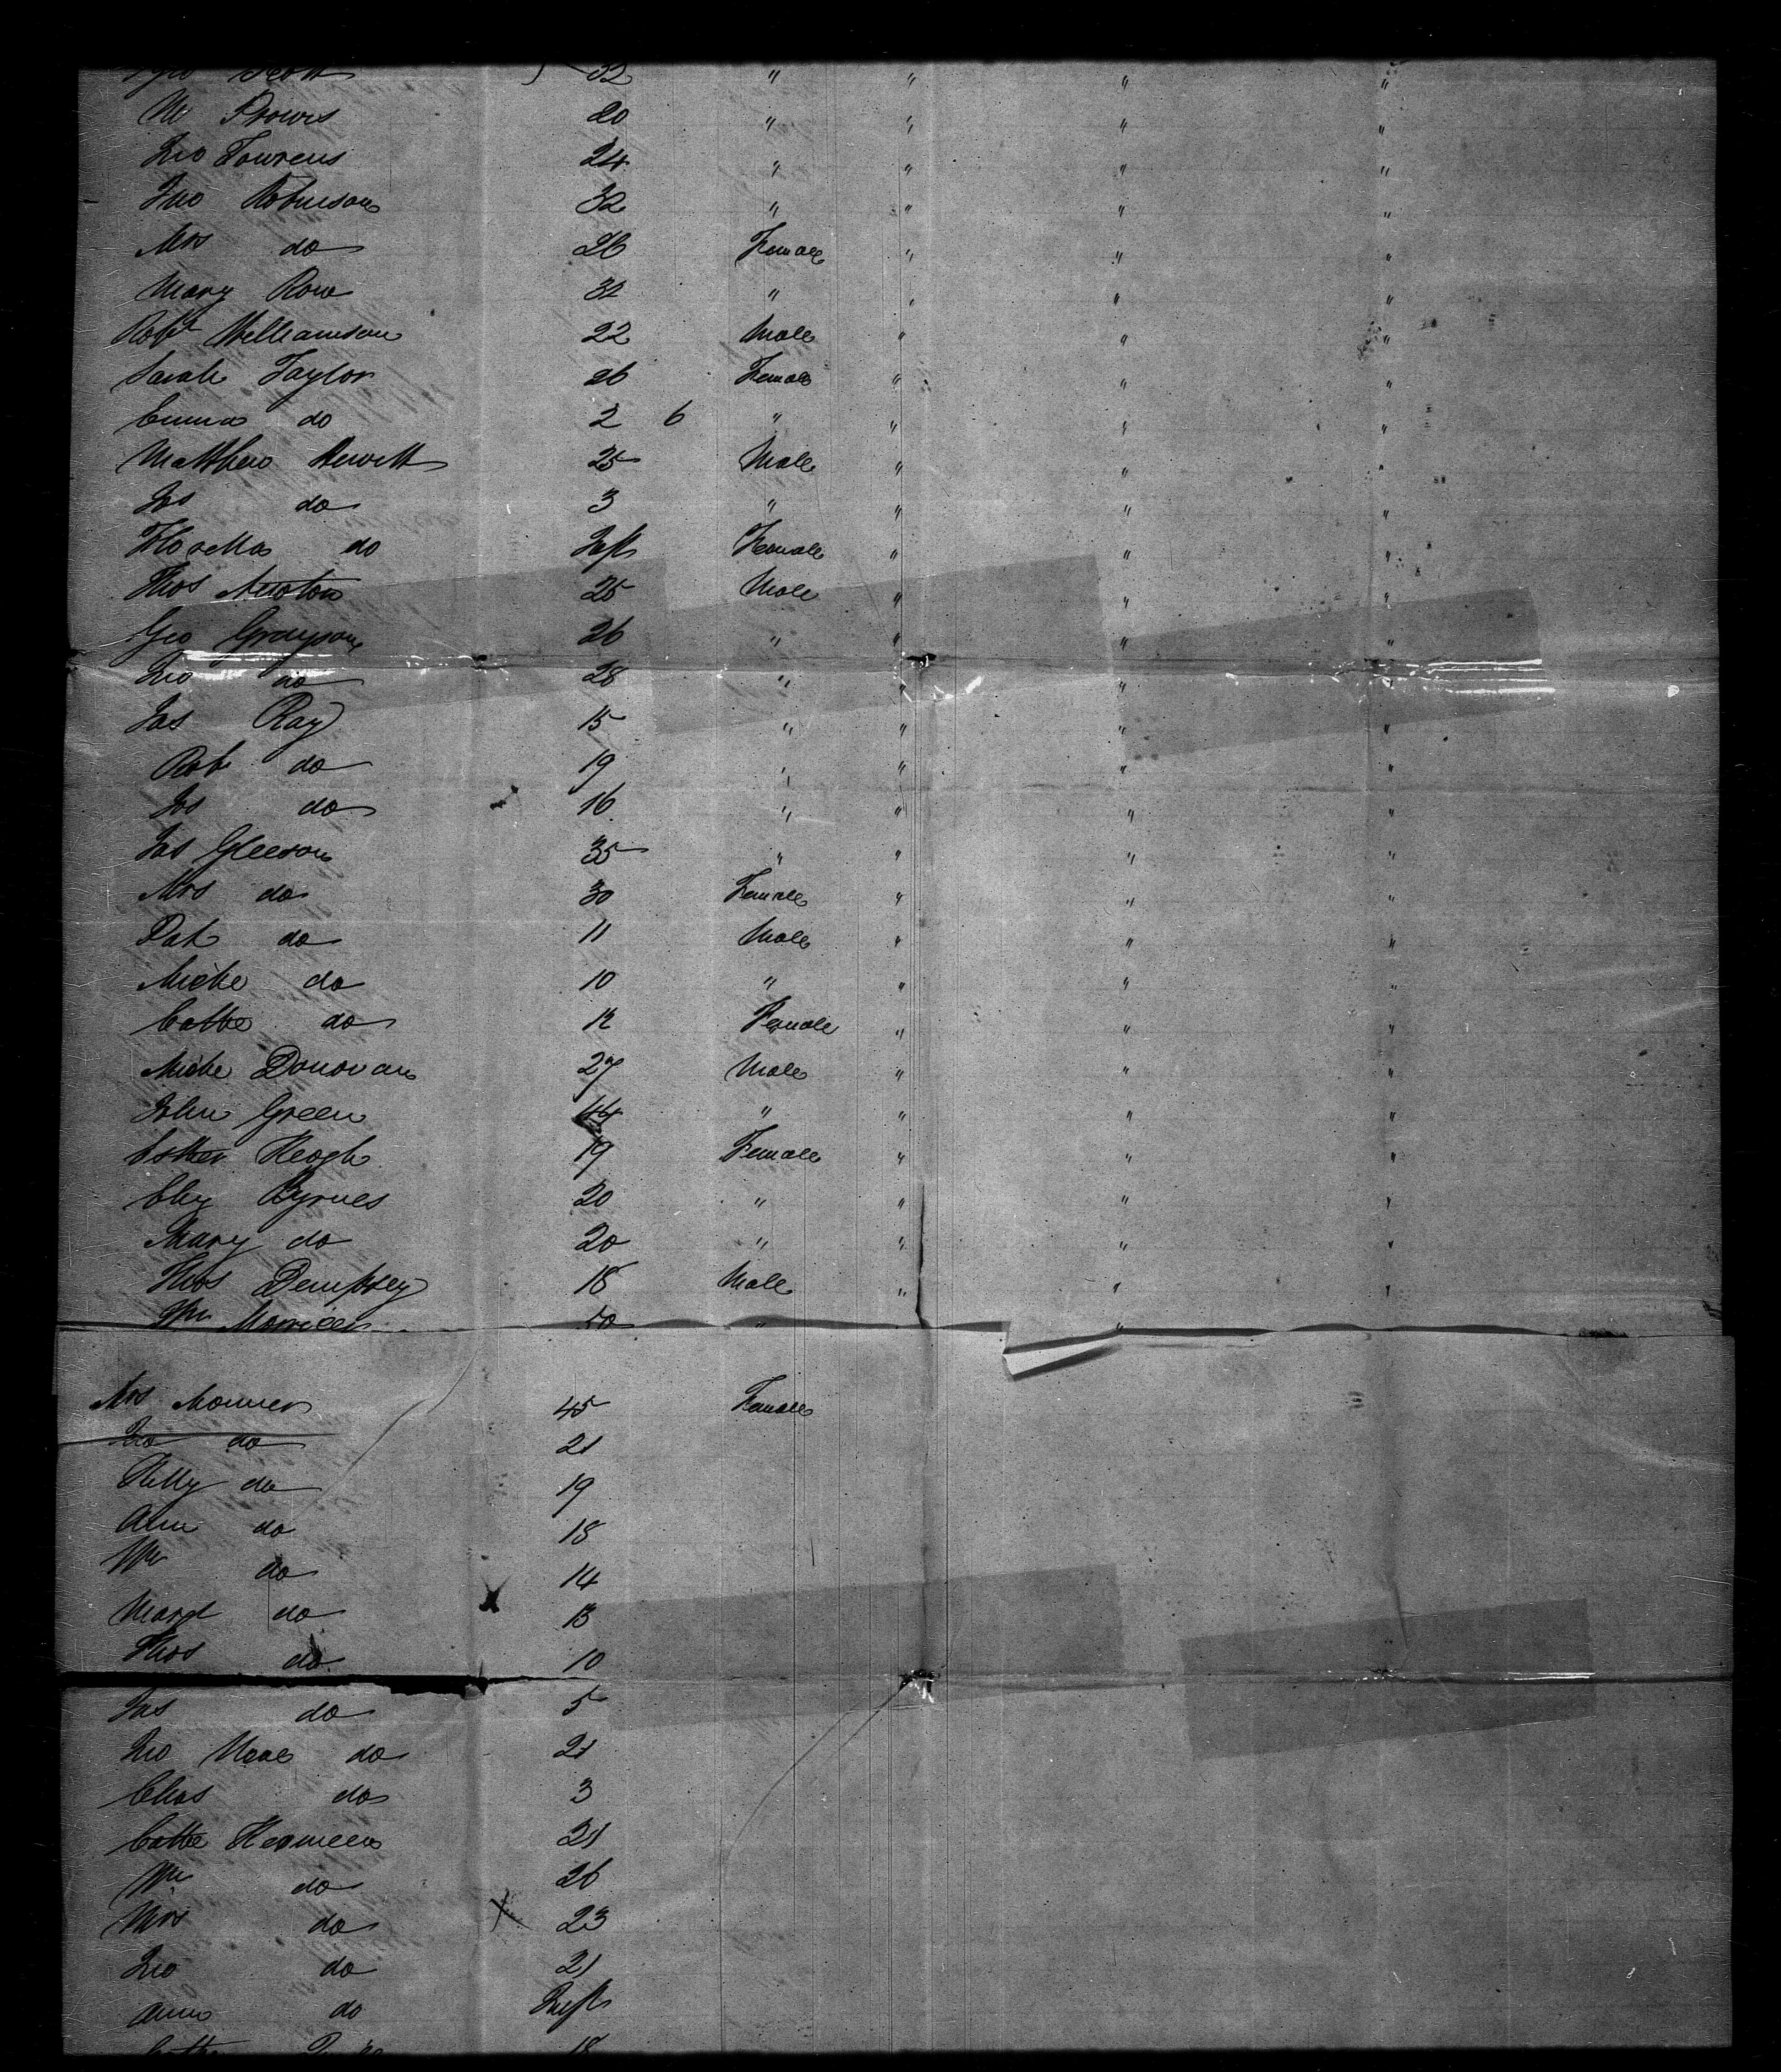 Scott 32 " " " "
20 " " " "
Jno 24 " " " "
Jno Robinson 32 " " " "
Mrs do 26 Female " " "
Mary Row 32 " " " "
Robt Williamson 22 Male " " "
Sarah Taylor 26 Female " " "
Emma do 2 6 " " " "
Matthew Hewitt 25 Male " " "
Jos do 3 " " " "
do Inft Female " " "
Thos Newton 25 Male " " "
Geo Grayson 26 " " " "
Jno do 28 " " " "
Jas Ray 15 " " " "
Robt do 19 " " " "
Jos do 16 " " " "
Jas Gleeson 35 " " " "
Mrs do 30 Female " " "
Pat do 11 Male " " "
Miche do 10 " " " "
Cathe do 12 Female " " "
Miche Donovan 27 Male " " "
John Green 44 " " " "
Esther Keogh 19 Female " " "
Byrnes 20 " " " "
Mary do 20 " " " "
Thos Dempsey 18 Male " " "
Wm 50 " "
Mrs 45 Female
Jno do 21
Kitty do 19
Ann do 18
Wm do 14
Margt do 13
Thos do 10
Jas do 5
Jno do 21
Chas do 3
Cathe 21
Wm do 26
Mrs do 23
Jno do 21
Anne do Inft
18